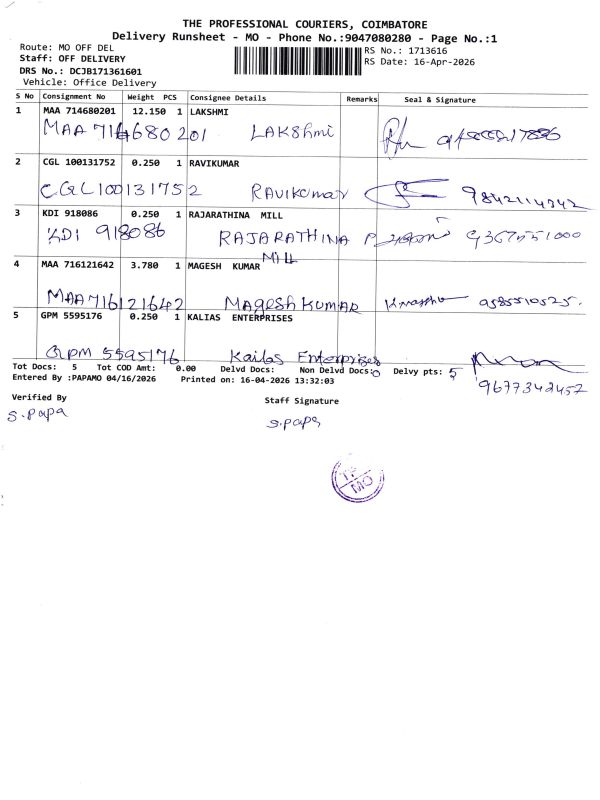 THE PROFESSIONAL COURIERS, COIMBATORE
Delivery Runsheet - MO - Phone No.:9047080280 - Page No.:1
Route: MO OFF DEL
RS No.: 1713616
Staff: OFF DELIVERY
RS Date: 16-Apr-2026
DRS No.: DCJB171361601
Vehicle: Office Delivery
S No Consignment No Weight PCS Consignee Details Remarks Seal & Signature
1 MAA 714680201 12.150 1 LAKSHMI
MAA 714680201 LAKShmi
2 CGL 100131752 0.250 1 RAVIKUMAR
CGL100131752 RAVIKUMAR 9842114242
3 KDI 918086 0.250 1 RAJARATHINA MILL
KDI 918086 RAJARATHINA
MILL
4 MAA 716121642 3.780 1 MAGESH KUMAR
MAA716121642 MAGESH KUMAR 9585510525.
5 GPM 5595176 0.250 1 KALIAS ENTERPRISES
GPM 5595176 Kailas Enterprises
Tot Docs: 5 Tot COD Amt: 0.00 Delvd Docs: Non Delvd Docs:0 Delvy pts: 5
9677342452
Entered By :PAPAMO 04/16/2026 Printed on: 16-04-2026 13:32:03
Verified By
Staff Signature
S.papa
S.papa
MO